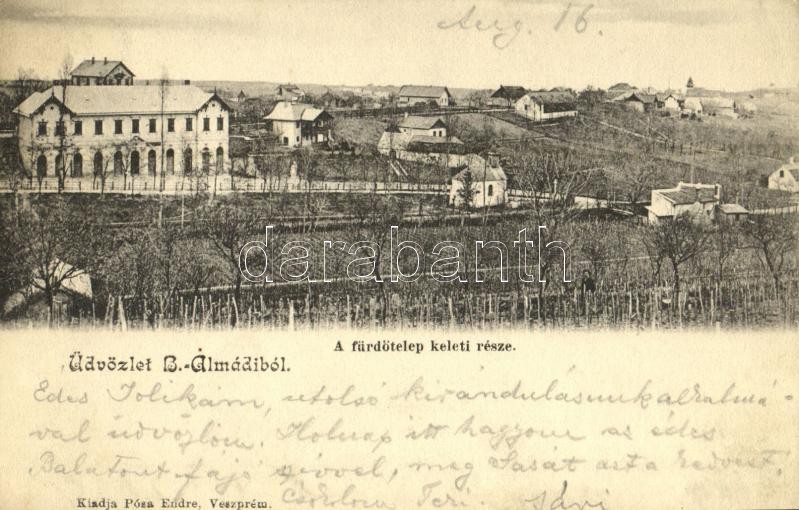 Aug. 16
darabanth
A fürdőtelep keleti része.
Üdvözlet B.-Almádiból.
Édes Jolikám, utolsó kirándulásunk alkalmá-
val üdvözlöm. Holnap itt hagyom az édes
Balatont fájó szívvel, meg Sasát azt a kedvest,
Csókolom Teri.
Kiadja Pósa Endre, Veszprém.